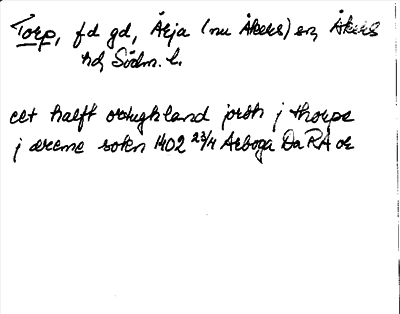 Torp, f d gd, Ärja (nu Åkers) sn, Åkers
hd, Södm. l.
eet halft ørtughland jordh j thorpe
j æreme sokn 1402 23/4 Arboga Da RA or